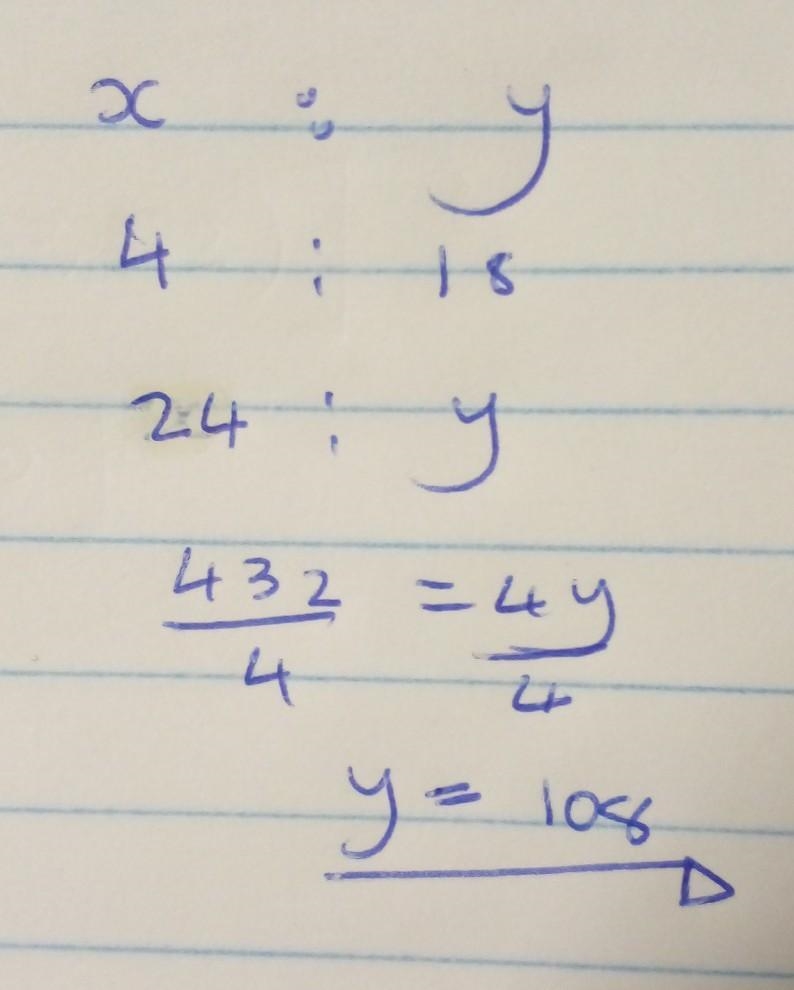 x : y
4 : 18
24 : y
432/4 = 4y/4
y = 108